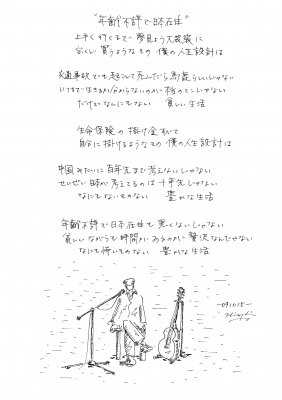 "年齢不詳で日本在住"
上手く行くまで夢見よう大袈裟に
宝くじ買うようなもの 僕の人生設計は
交通事故でも起こして死んだら馬鹿らしいじゃない
いくつまで生きるか分からないのが本当のとこじゃない
だけどなんにもない 貧しい生活
生命保険の掛け金も
自分に掛けるようなもの 僕の人生設計は
中国みたいに百年先まで考えないじゃない
せいぜい日本が考えてるのは十年先じゃない
なにもない 豊かな生活
年齢不詳で日本在住も悪くないじゃない
貧しいながらも時間があるのが贅沢なんじゃない
なにも怖いものない 豊かな生活
09.10.15